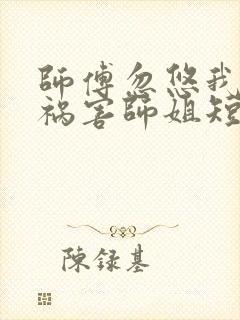 師傅忽悠我
祸害師姐短
陳録基